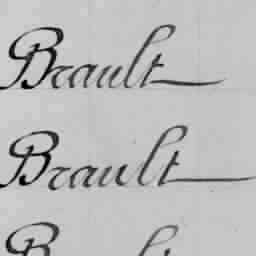 Brault
Brault